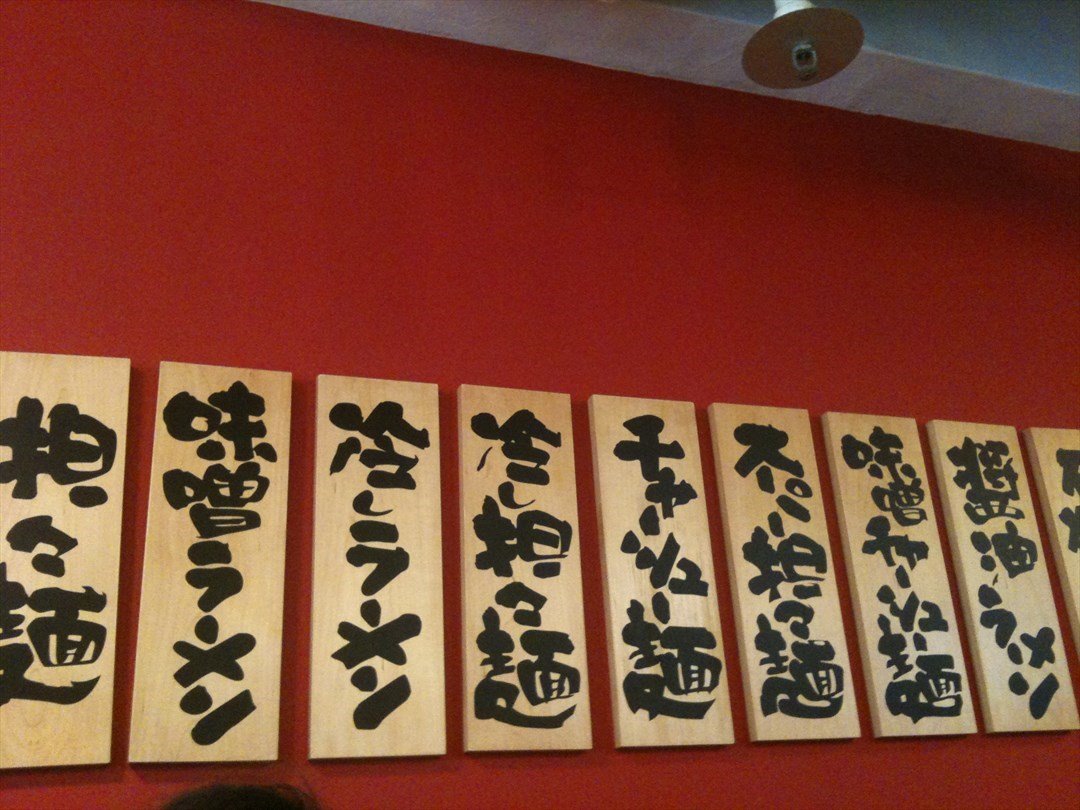 担々麺
味噌ラーメン
冷しラーメン
冷し担々麺
チャーシュー麺
スーパー担々麺
味噌チャーシュー麺
醤油ラーメン